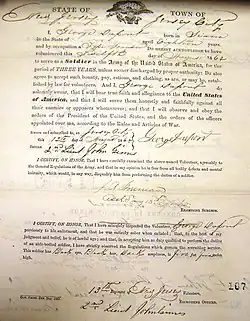 STATE OF TOWN OF
New Jersey Jersey City
I, George Dupont born in
in the State of aged years,
and by occupation a DO HEREBY ACKNOWLEDGE to have
volunteered this day of 1862
to serve as a Soldier in the Army of the United States of America, for the
period of THREE YEARS, unless sooner discharged by proper authority: Do also
agree to accept such bounty, pay, rations, and clothing, as are, or may be, estab-
lished by law for volunteers. And I, George Dupont do
solemnly swear, that I will bear true faith and allegiance to the United States
of America, and that I will serve them honestly and faithfully against all
their enemies or opposers whomsoever; and that I will observe and obey the
orders of the President of the United States, and the orders of the officers
appointed over me, according to the Rules and Articles of War.
Sworn and subscribed to, at Jersey City
this 12th day of 1862 George Dupont
BEFORE 2nd Lieut John
I CERTIFY, ON HONOR, That I have carefully examined the above named Volunteer, agreeably to
the General Regulations of the Army, and that in my opinion he is free from all bodily defects and mental
infirmity, which would, in any way, disqualify him from performing the duties of a soldier.
EXAMINING SURGEON.
I CERTIFY, ON HONOR, That I have minutely inspected the Volunteer, George Dupont
previously to his enlistment, and that he was entirely sober when enlisted; that, to the best of my
judgment and belief, he is of lawful age; and that, in accepting him as duly qualified to perform the duties
of an able-bodied soldier, I have strictly observed the Regulations which govern the recruiting service.
This soldier has eyes, hair, complexion, is feet inches
high.
187
13th New Jersey
2nd Lieut John
RECRUITING OFFICER.